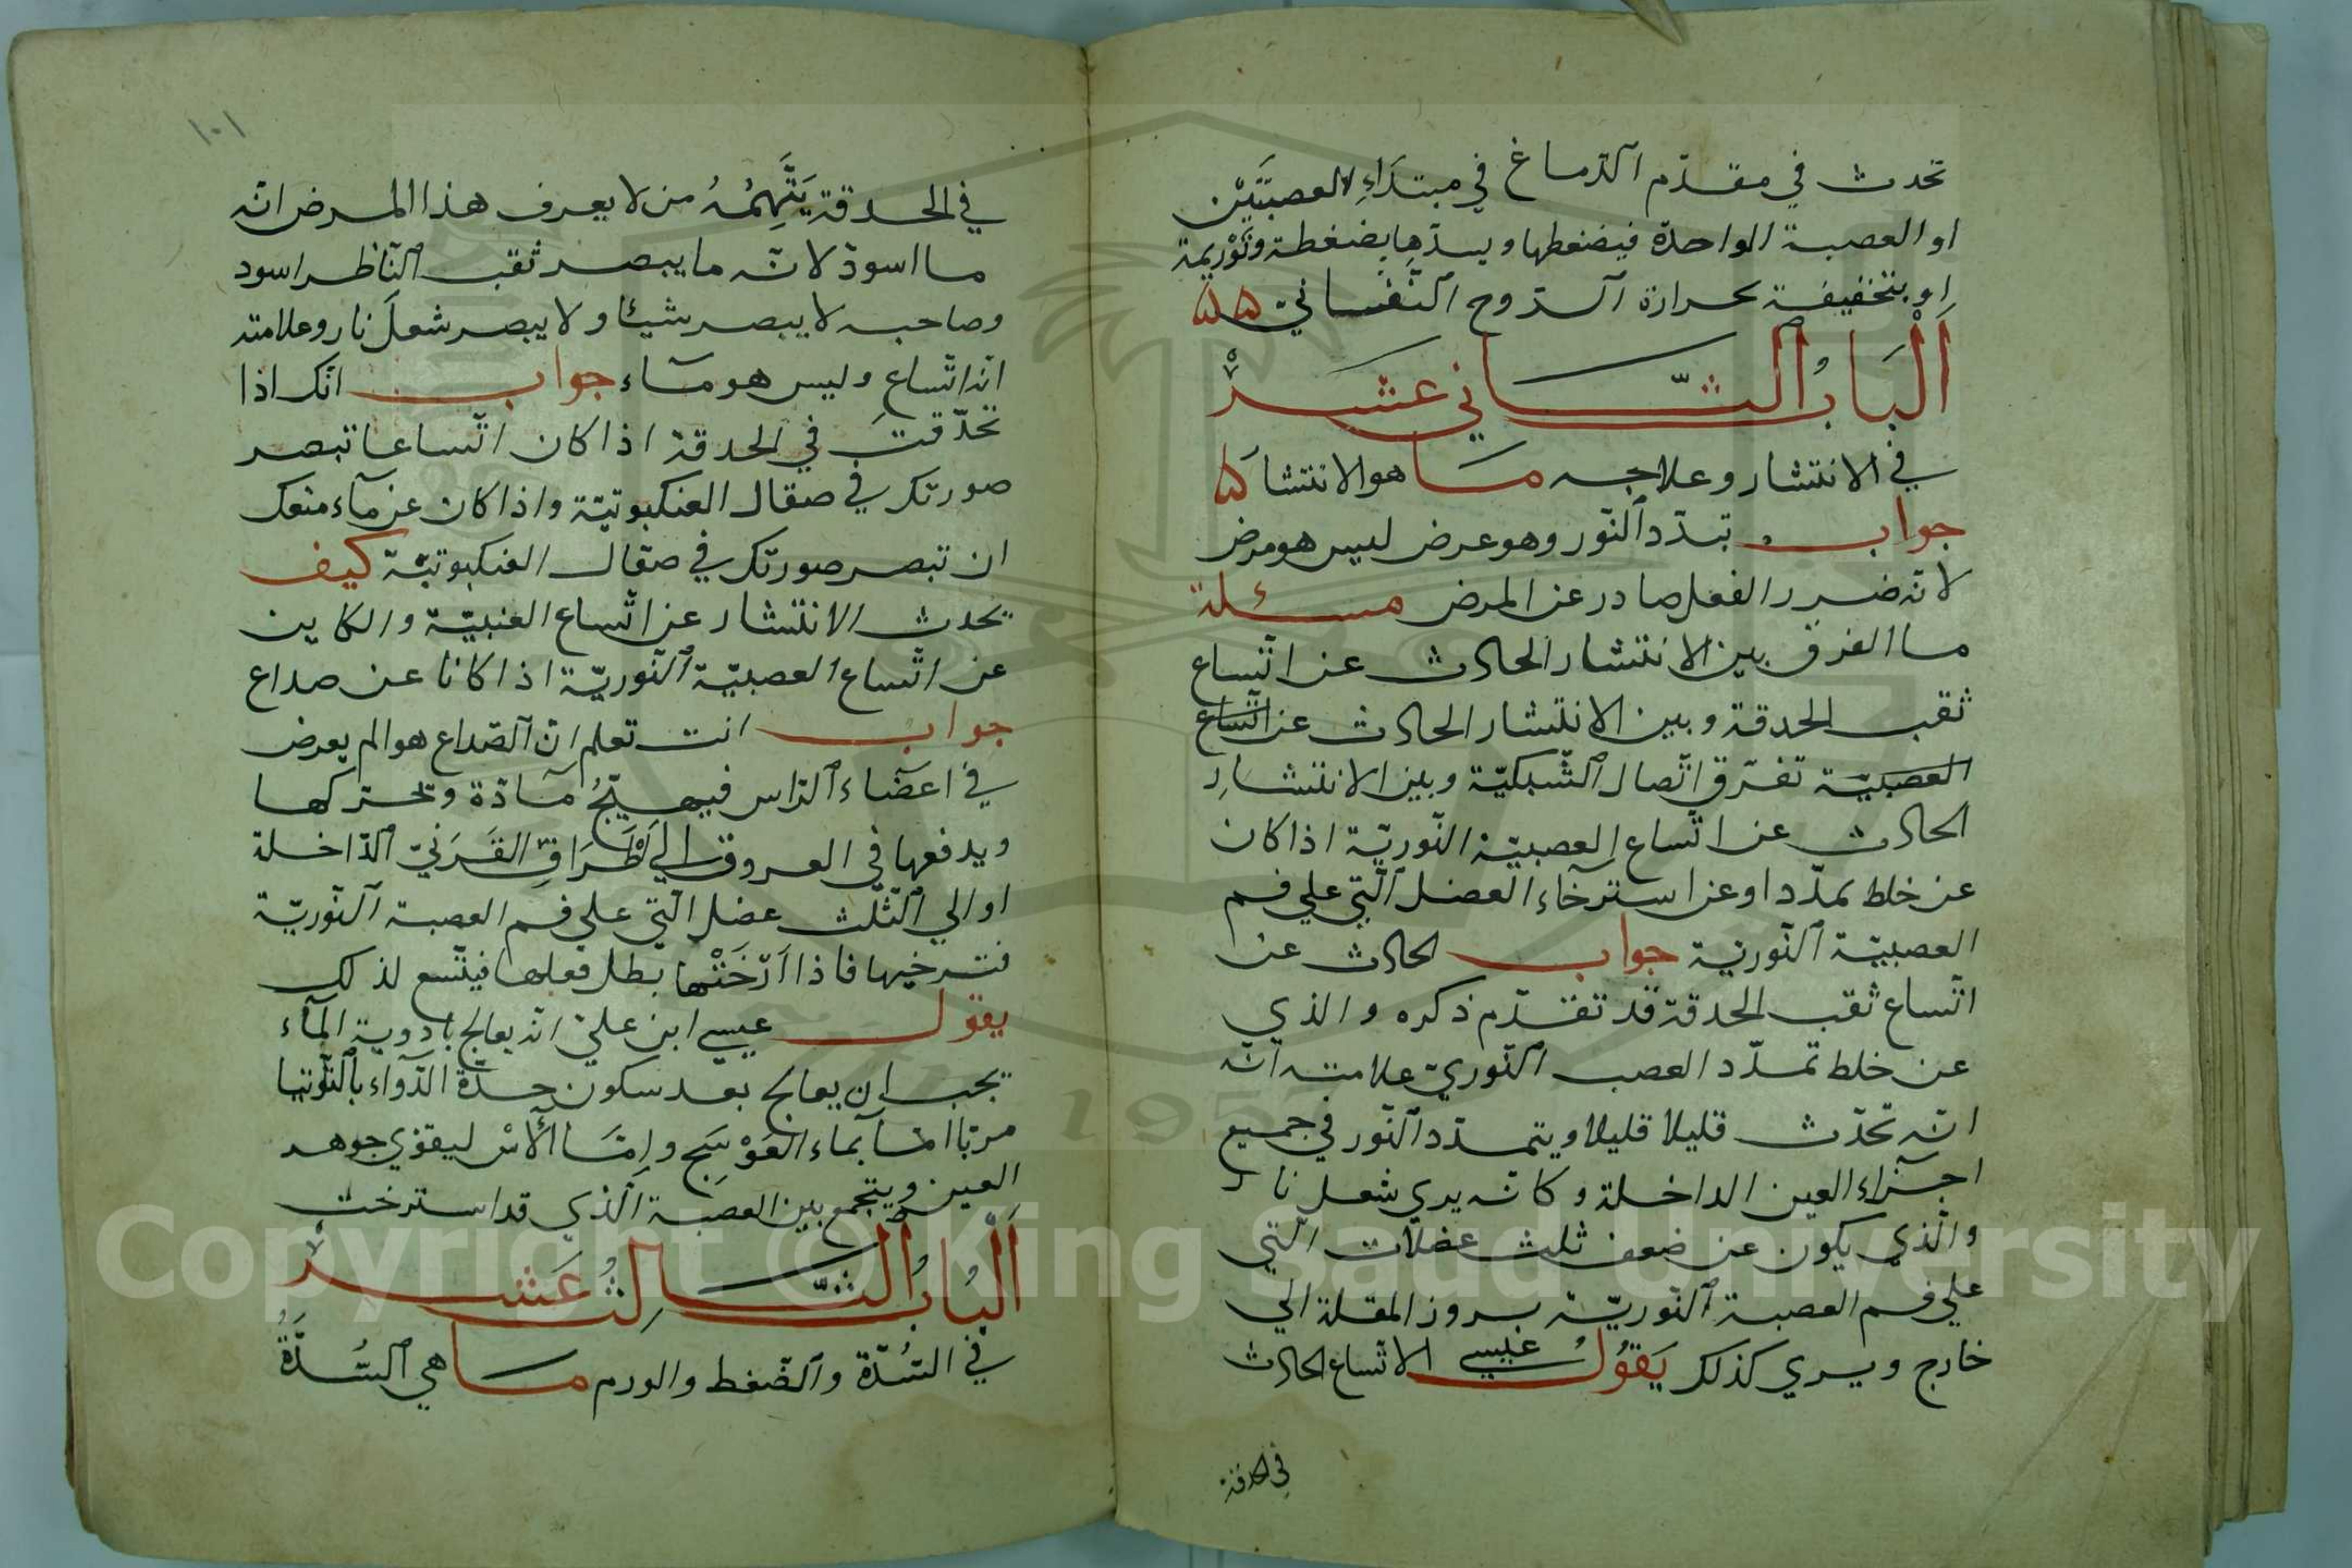 تحدث في مقدّم الدماغ في مبتداء العصبتين
او العصبة الواحدة فيضغطها ويسدّها بضغطة وتوريمة
او بتخفيفة بحرارة الروح النفساني
اَلْبَابُ الثّاني عشر
في الانتشار وعلاجه ما هو الانتشار
جواب تبدّد النّور وهو عرض ليس هو مرض
لانه ضرر الفعل صادر عن المرض مسئلة
ما الفرق بين الانتشار الحادث عن اتّساع
ثقب الحدقة وبين الانتشار الحادث عن اتّساع
العصبيّة تفرّق اتّصال الشّبكيّة وبين الانتشار
الحادث عن اتّساع العصبيّة النّوريّة اذا كان
عن خلط يمدّد او عن استرخاء العضل الّتي علي فم
العصبيّة النّوريّة جواب الحادث عن
اتّساع ثقب الحدقة قد تقدّم ذكره والذي
عن خلط تمدّد العصب النّوريّ علامته انّه
انّه تحدّث قليلا قليلا ويتمدّد النّور في جميع
اجزاء العين الداخلة وكانه يري شعل نار
والّذي يكون عن ضعف ثلث عضلات الّتي
علي فم العصبة النّوريّة بروز المقلة الي
خارج ويري كذلك يَقُولُ عيسي الاتّساع الحادث
في الحدقة
١٠١
في الحدقة يَتَّهِمُهُ من لا يعرف هذا المرض انّه
ما اسود لانّه ما يبصر ثقب النّاظر اسود
وصاحبه لا يبصر شيئا ولا يبصر شعل نار وعلامته
انه اتّساع وليس هو ماء جواب انّك اذا
تحدّقت في الحدقة اذا كان اتّساعا تبصر
صورتك في صقال العنكبوتيّة واذا كان عن ماء منعك
ان تبصر صورتك في صقال العنكبوتيّة كيف
يحدث الانتشار عن اتّساع العنبيّة والكاين
عن اتّساع العصبيّة النّوريّة اذا كانا عن صداع
جواب انت تعلم انّ الصّداع هو الم يعرض
في اعضاء الرّاس فيهيّجُ مادّة ويحركها
ويدفعها في العروق الي اطراف القَرَنيّ الدّاخلة
او الي الثّلث عضل الّتي علي فم العصبة النّوريّة
فترخيها فاذا ارخَتْها بطل فعلها فيتّسع لذلك
يقول عيسي ابن عليّ انه يعالج بادوية الماء
يجب ان يعالج بعد سكون حدّة الدّواء بالتّوتيا
مربّا امّا بماء العَوْسَج وامّا الآس ليقوّي جوهر
العين ويتجمع بين العصبة الّذي قد استرخت
اَلْبَابُ الثّالثُ عَشر
في السّدّة والضّغط والورم ما هي السّدّةُ
Copyright © King Saud University
1957